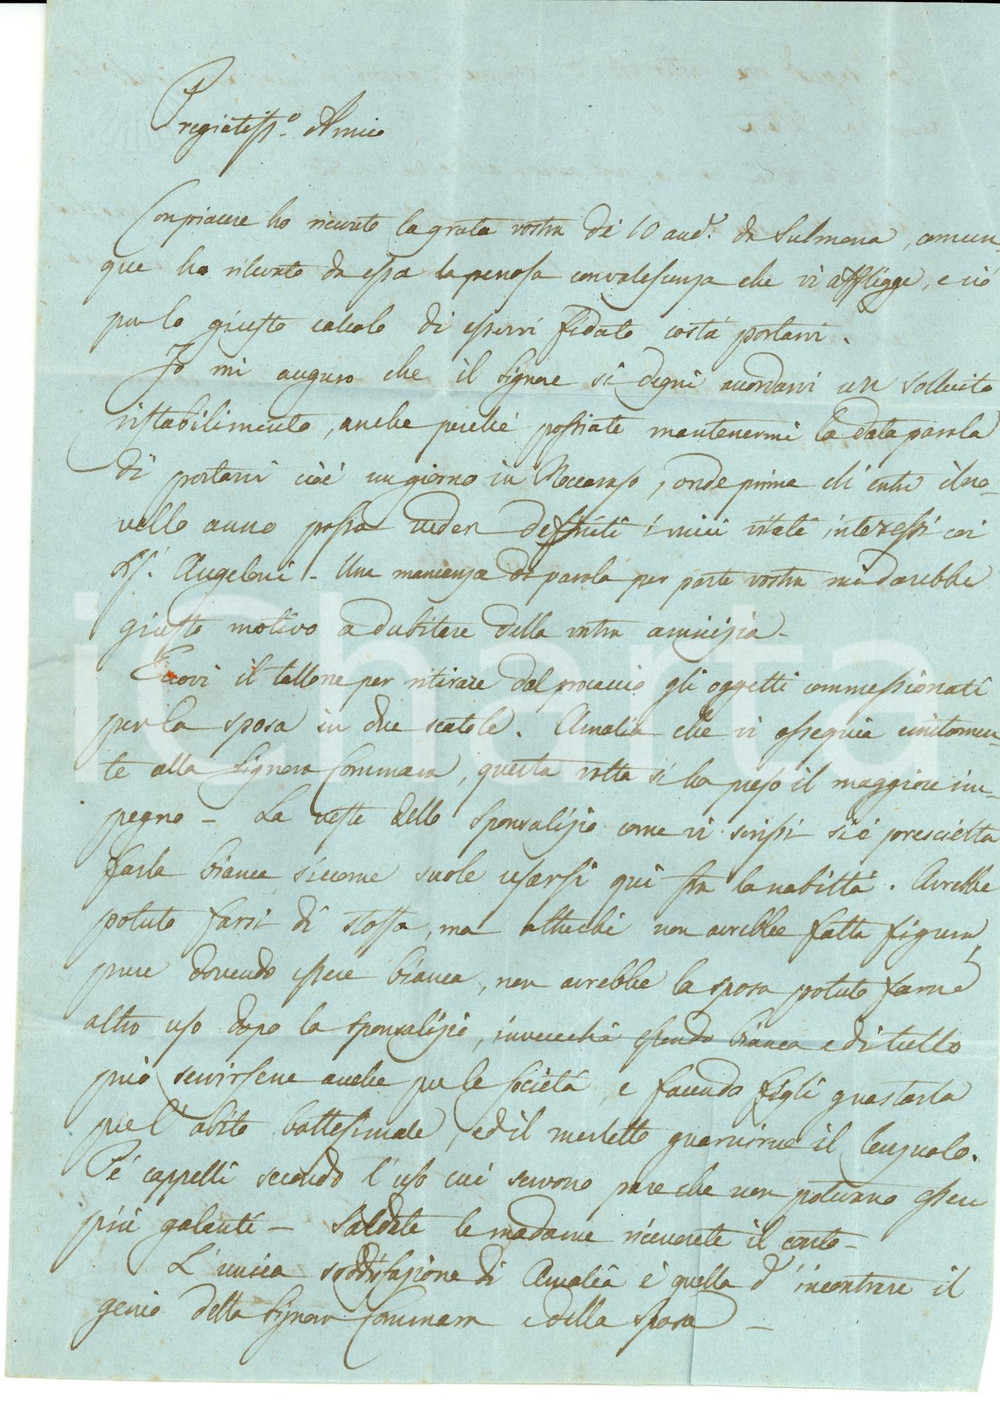 Pregiatiss.o Amico
Con piacere ho ricevuto la grata vostra di 10 and.e da Sulmona, comun-
que ho rilevato da essa la penosa convalescenza che vi affligge, e ciò
per lo giusto calcolo di esservi fidato costà portarvi.
Io mi auguro che il Signore si degni accordarvi un sollecito
ristabilimento, anche perché possiate mantenermi la data parola
di portarvi cioè un giorno in Roccaraso, onde prima di entrare il no-
vello anno possa veder definiti i miei interessi coi
SS.i Angeloni - Una mancanza di parola per parte vostra mi darebbe
giusto motivo a dubitare della vostra amicizia -
Eccovi il tallone per ritirare dal procaccio gli oggetti commessionati
per la sposa in due scatole. Amalia che vi ossequia unitamen-
te alla Signora Commara, questa volta si ha preso il maggiore im-
pegno - La veste dello sponsalizio come vi scrissi si è prescielta
farla bianca siccome suole usarsi qui fra la nobiltà. Avrebbe
potuto farsi di stoffa, ma oltreché non avrebbe fatta figura,
pure dovendo essere bianca, non avrebbe la sposa potuto farne
altro uso dopo lo sponsalizio, invecché essendo bianca e di tullo
può servirsene anche per le società, e facendo figli guastarla
per l'abito battesimale, ed il merletto guarnirne il lenzuolo.
Pe' cappelli secondo l'uso cui servono pare che non potevano essere
più galanti - Saldate le madame riceverete il conto -
L'unica soddisfazione di Amalia è quella d'incontrare il
genio della Signora Commara e della sposa -
iCharta